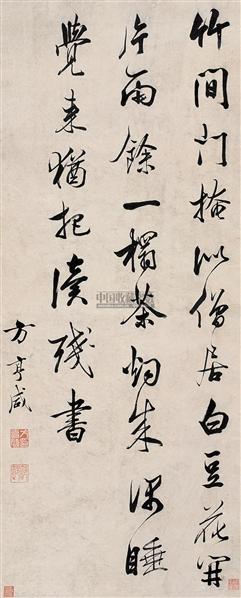 竹间门掩似僧居白豆花开
片雨馀一榻茶烟成偶睡
觉来犹把读残书
方亨咸
中国收藏